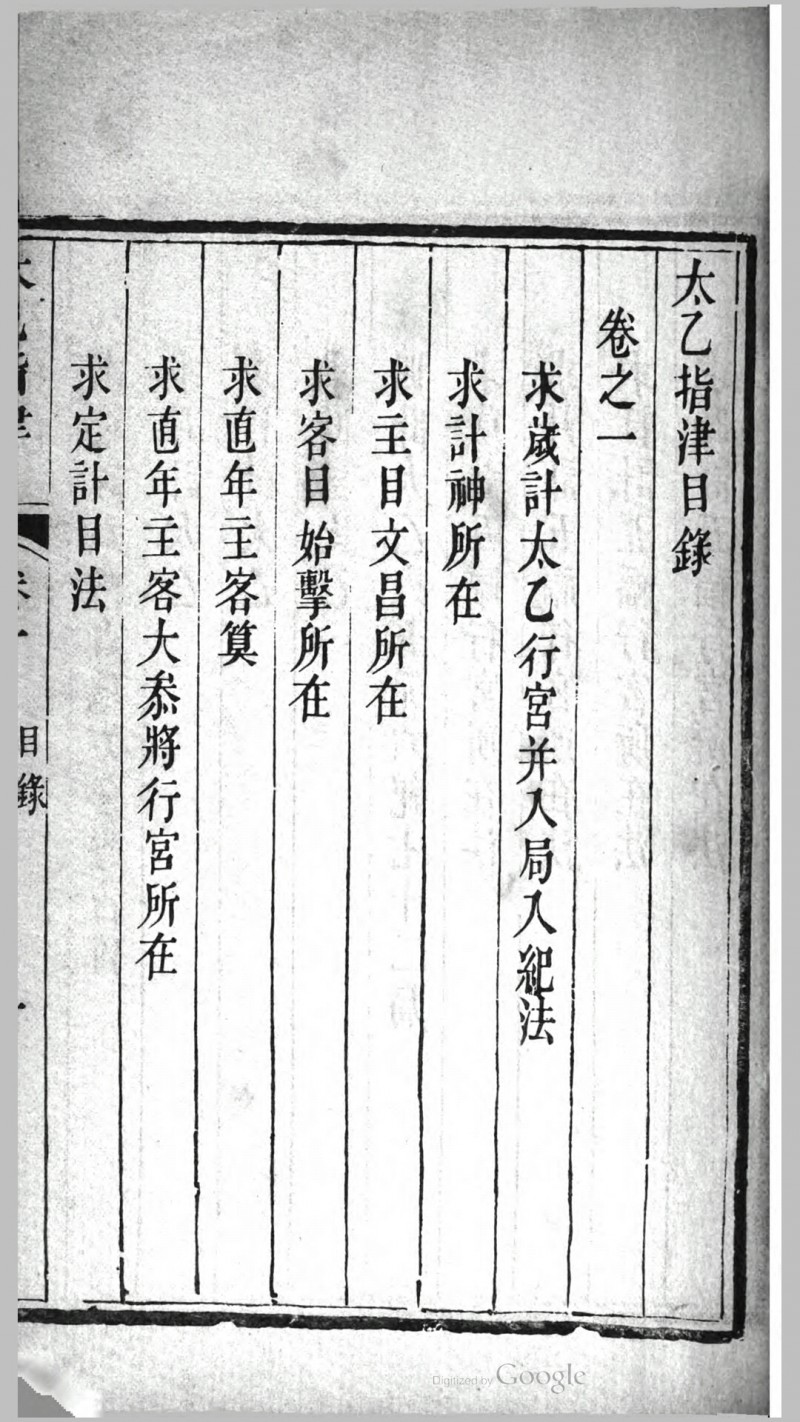 太乙指津目錄
卷之一
求歲計太乙行宮并入局入紀法
求計神所在
求主目文昌所在
求客目始擊所在
求直年主客算
求直年主客大叅將行宮所在
求定計目法
目錄
Digitized by Google